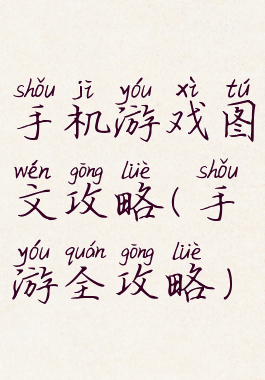 shǒu jī yóu xì tú
手机游戏图
wén gōng lüè shǒu
文攻略(手
yóu quán gōng lüè
游全攻略)